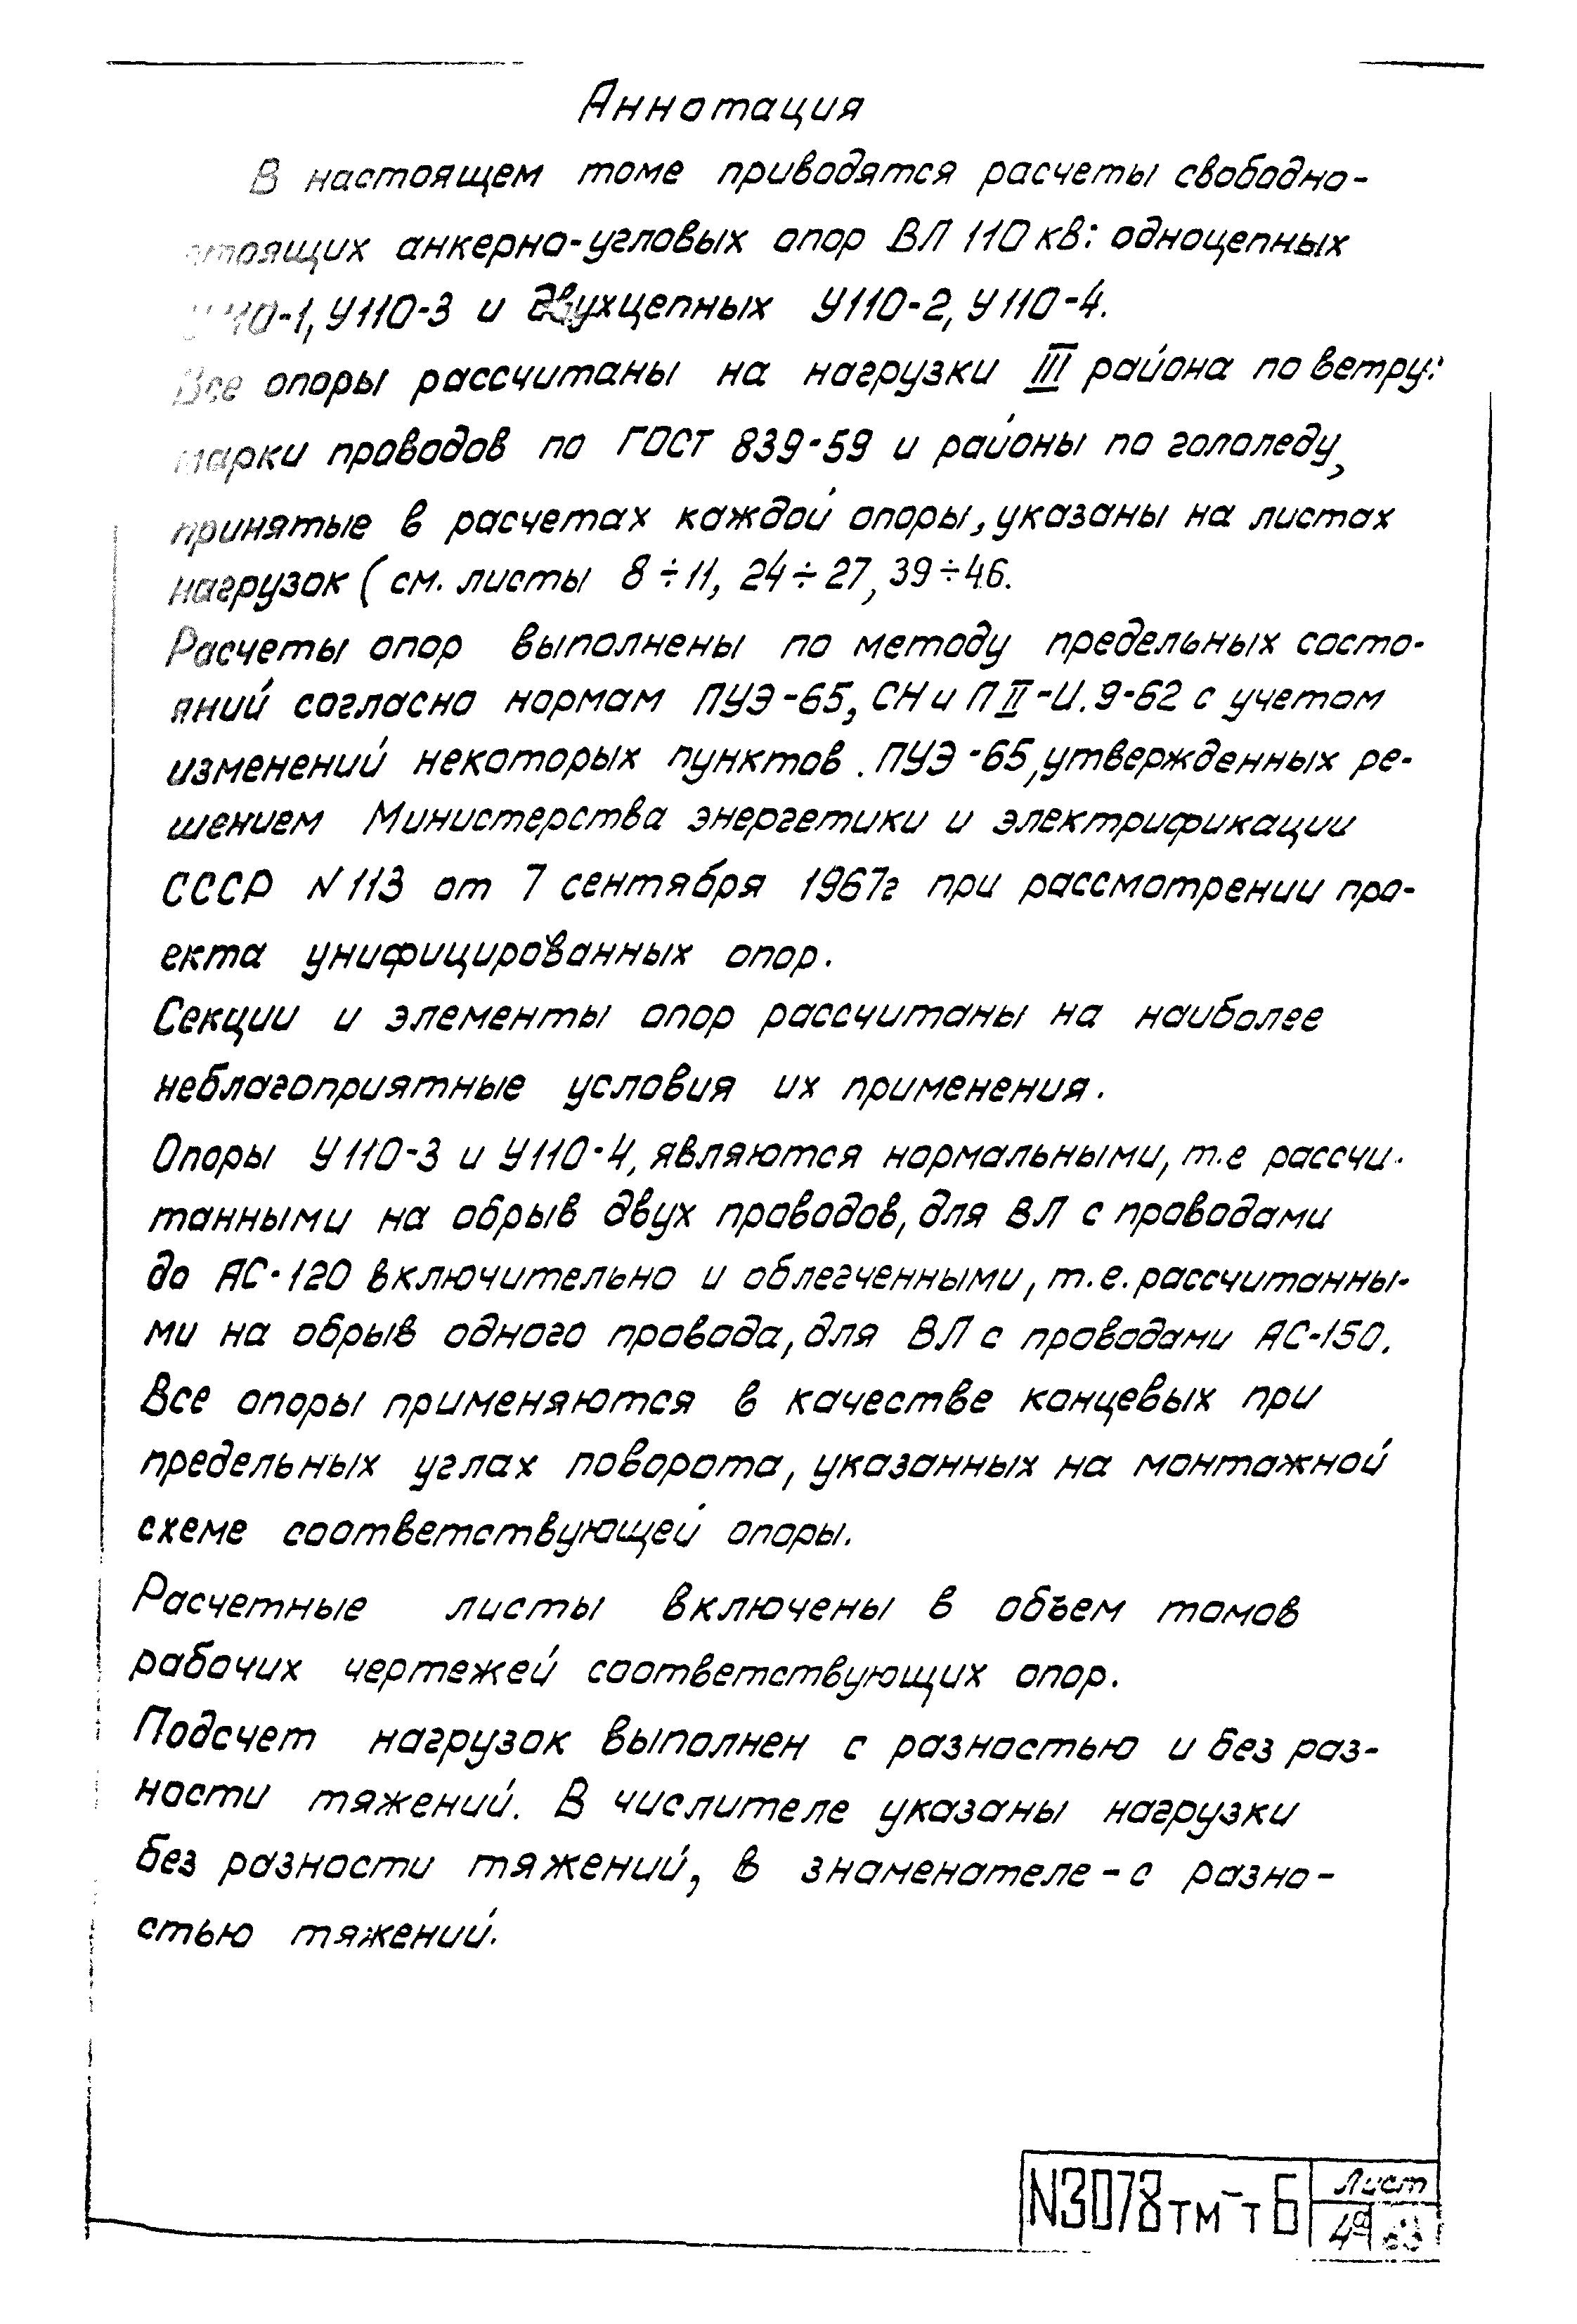 Аннотация
В настоящем томе приводятся расчеты свободно-
стоящих анкерно-угловых опор ВЛ 110 кв: одноцепных
У110-1, У110-3 и двухцепных У110-2, У110-4.
Все опоры рассчитаны на нагрузки III района по ветру:
марки проводов по ГОСТ 839-59 и районы по гололеду,
принятые в расчетах каждой опоры, указаны на листах
нагрузок ( см. листы 8÷11, 24÷27, 39÷46.
Расчеты опор выполнены по методу предельных состо-
яний согласно нормам ПУЭ-65, СН и П II-И. 9-62 с учетом
изменений некоторых пунктов. ПУЭ-65, утвержденных ре-
шением Министерства энергетики и электрификации
СССР N 113 от 7 сентября 1967г при рассмотрении про-
екта унифицированных опор.
Секции и элементы опор рассчитаны на наиболее
неблагоприятные условия их применения.
Опоры У110-3 и У110-4, являются нормальными, т.е рассчи-
танными на обрыв двух проводов, для ВЛ с проводами
до АС-120 включительно и облегченными, т.е. рассчитанны-
ми на обрыв одного провода, для ВЛ с проводами АС-150.
Все опоры применяются в качестве концевых при
предельных углах поворота, указанных на монтажной
схеме соответствующей опоры.
Расчетные листы включены в объем томов
рабочих чертежей соответствующих опор.
Подсчет нагрузок выполнен с разностью и без раз-
ности тяжений. В числителе указаны нагрузки
без разности тяжений, в знаменателе - с разно-
стью тяжений.
N3078тм-т6
Лист
4а